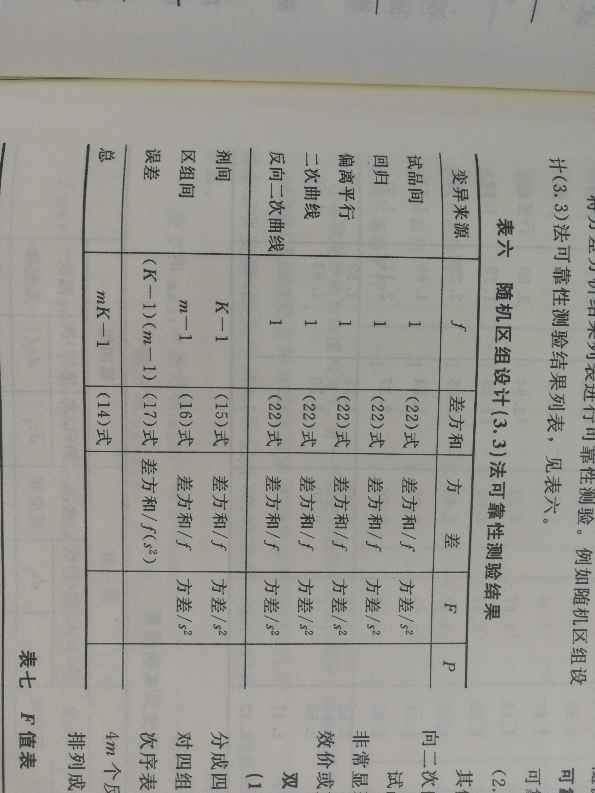 将方差分析结果列表进行可靠性测验。例如随机区组设
计(3.3)法可靠性测验结果列表，见表六。
表六 随机区组设计(3.3)法可靠性测验结果
变异来源 f 差方和 方差 F P
试品间 1 (22)式 差方和/f 方差/s²
回归 1 (22)式 差方和/f 方差/s²
偏离平行 1 (22)式 差方和/f 方差/s²
二次曲线 1 (22)式 差方和/f 方差/s²
反向二次曲线 1 (22)式 差方和/f 方差/s²
剂间 K−1 (15)式 差方和/f 方差/s²
区组间 m−1 (16)式 差方和/f 方差/s²
误差 (K−1)(m−1) (17)式 差方和/f(s²)
总 mK−1 (14)式
表七 F值表
(2.
其
向二次
试
非常显
效价或
双
(1
分成四
对四组
次序表
4m个反
排列成